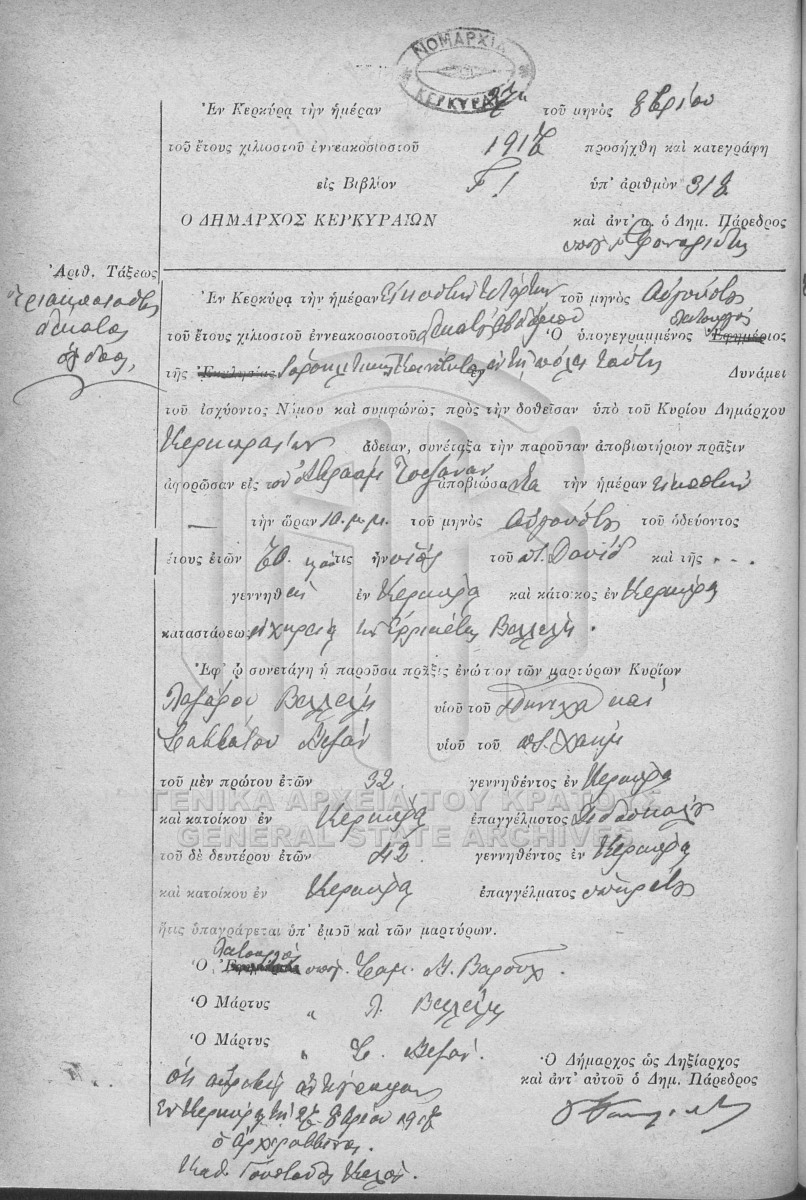 ΝΟΜΑΡΧΙΑ
ΚΕΡΚΥΡΑΣ
Ἐν Κερκύρᾳ τὴν ἡμέραν 27 τοῦ μηνὸς 8βρίου
τοῦ ἔτους χιλιοστοῦ ἐννεακοσιοστοῦ 1917 προσήχθη καὶ κατεγράφη
εἰς Βιβλίον Γ! ὑπ' ἀριθμὸν 318
Ὁ ΔΗΜΑΡΧΟΣ ΚΕΡΚΥΡΑΙΩΝ καὶ ἀντ' α. ὁ Δημ. Πάρεδρος
Ἀριθ. Τάξεως
τριακοσιοστὸς
δέκατος
ὄγδοος,
Ἐν Κερκύρᾳ τὴν ἡμέραν Εἰκοστὴν τετάρτην τοῦ μηνὸς Αὐγούστου
τοῦ ἔτους χιλιοστοῦ ἐννεακοσιοστοῦ δεκάτου ἑβδόμου Ὁ ὑπογεγραμμένος λειτουργὸς
τῆς Ἰσραηλιτικῆς Κοινότητος ἐν τῇ πόλει ταύτῃ Δυνάμει
τοῦ ἰσχύοντος Νόμου καὶ συμφώνως πρὸς τὴν δοθεῖσαν ὑπὸ τοῦ Κυρίου Δημάρχου
Κερκυραίων ἄδειαν, συνέταξα τὴν παροῦσαν ἀποβιωτήριον πρᾶξιν
ἀφορῶσαν εἰς τὸν Ἀβραὰμ ἀποβιώσαντα τὴν ἡμέραν εἰκοστὴν
τὴν ὥραν 10 μ.μ. τοῦ μηνὸς Αὐγούστου τοῦ ὁδεύοντος
ἔτους ἐτῶν 70 ἦν υἱὸς τοῦ π. Δαυὶδ καὶ τῆς - - -
γεννηθεὶς ἐν Κερκύρᾳ καὶ κάτοικος ἐν Κερκύρᾳ
καταστάσεως ἐν χηρείᾳ τῆς Ἑρριέτης Βελλέλη.
Ἐφ' ᾧ συνετάγη ἡ παροῦσα πρᾶξις ἐνώπιον τῶν μαρτύρων Κυρίων
Λαζάρου Βελλέλη υἱοῦ τοῦ καὶ
Σαββάτου Βεζὰν υἱοῦ τοῦ π. Χαΐμ
τοῦ μὲν πρώτου ἐτῶν 32 γεννηθέντος ἐν Κερκύρᾳ
καὶ κατοίκου ἐν Κερκύρᾳ ἐπαγγέλματος διδασκάλου
τοῦ δὲ δευτέρου ἐτῶν 42. γεννηθέντος ἐν Κερκύρᾳ
καὶ κατοίκου ἐν Κερκύρᾳ ἐπαγγέλματος ὑπηρέτης
ἥτις ὑπογράφεται ὑπ' ἐμοῦ καὶ τῶν μαρτύρων.
Ὁ λειτουργὸς ὑπογ. Σαμ. Μ. Βαροὺχ.
Ὁ Μάρτυς " Λ. Βελλέλης
Ὁ Μάρτυς " Σ. Βεζὰν.
Ὅτι ἀκριβὲς ἀντίγραφον
Ἐν Κερκύρᾳ τῇ 27 8βρίου 1917
ὁ ἀρχιραββῖνος
Ὁ Δήμαρχος ὡς Ληξίαρχος
καὶ ἀντ' αὐτοῦ ὁ Δημ. Πάρεδρος
ΓΕΝΙΚΑ ΑΡΧΕΙΑ ΤΟΥ ΚΡΑΤΟΥΣ
GENERAL STATE ARCHIVES